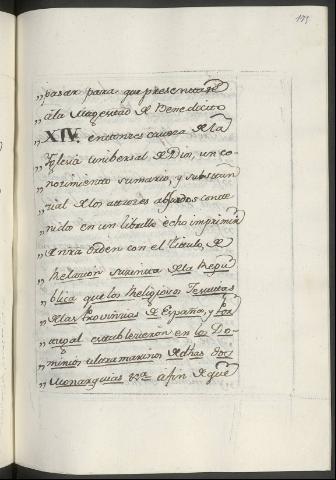 199
„pasar para que presentase
„a la Magestad de Benedicto
„XIV. entonces caveza de la
„Yglesia Unibersal de Dios, un co-
„nocimiento sumario, y substan-
„zial de los atroces absurdos conte-
„nido en un librillo echo imprimir
„de nra orden con el titulo, de
„Relacion suscinta de la Repu-
„blica que los Religiosos Jesuitas
„de las Provincias de España, y Por-
„tugal establecieron en los Do-
„minios ultramarinos de dhas dos
„Monarquias &ra a fin de que